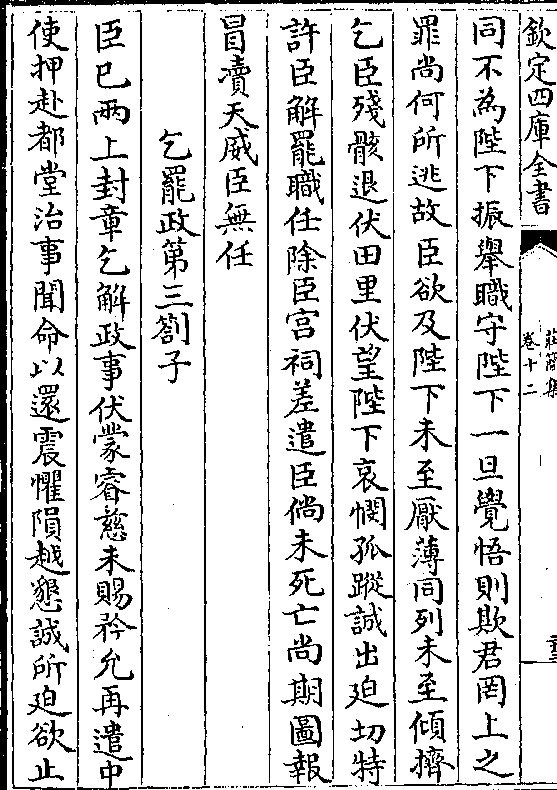 欽定四庫全書
莊簡集
卷十二
同不為陛下振舉職守陛下一旦覺悟則欺君罔上之
罪尚何所逃故臣欲及陛下未至厭薄同列未至傾擠
乞臣殘骸退伏田里伏望陛下哀憫孤蹤誠出迫切特
許臣解罷職任除臣宫祠差遣臣倘未死亡尚期圖報
冒瀆天威臣無任
乞罷政第三劄子
臣已兩上封章乞解政事伏蒙睿慈未賜矜允再遣中
使押赴都堂治事聞命以還震懼隕越懇誠所迫欲止